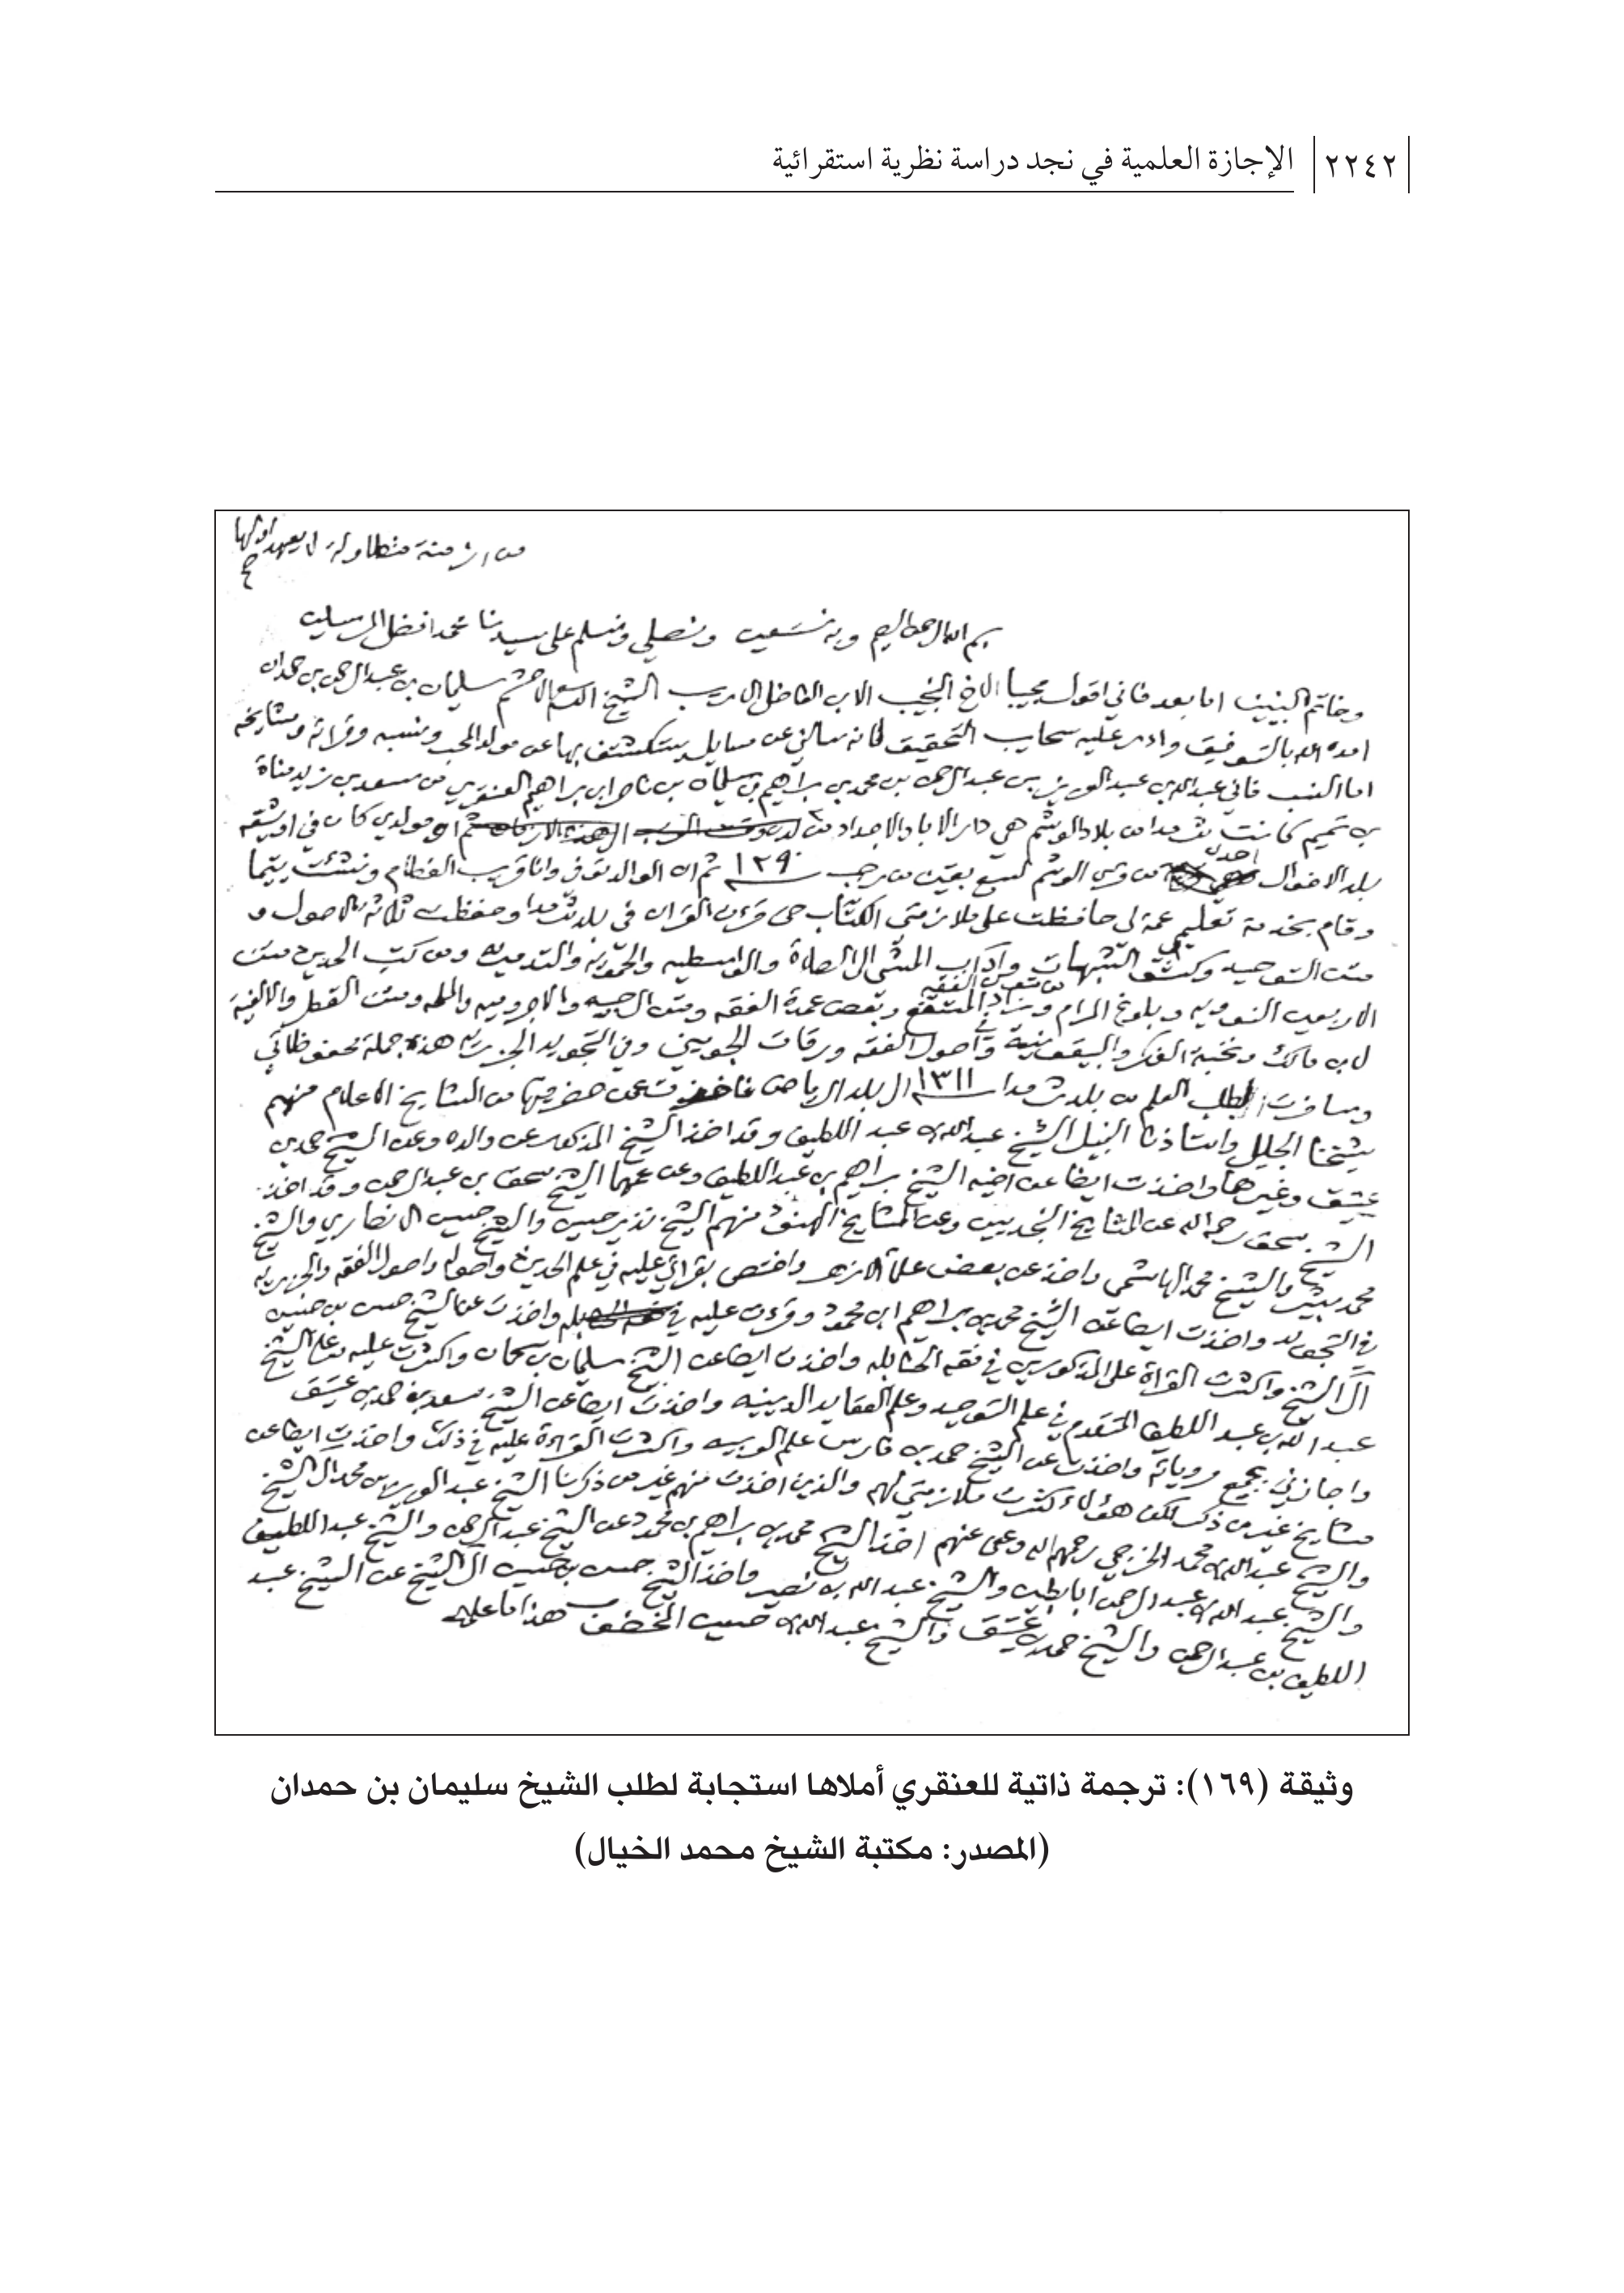 ٢٢٤٢ الإجازة العلمية في نجد دراسة نظرية استقرائية
من ازمنة متطاولة لا يعهد اولها
صح
بسم الله الرحمن الرحيم وبه نستعين ونصلي ونسلم على سيدنا محمد افضل المرسلين
وخاتم النبيين اما بعد فاني اقول مجيبا الاخ النجيب الاب الفاضل الاريب الشيخ سليمان بن عبد الرحمن بن حمدان
امده الله بالتوفيق وادر عليه سحايب التحقيق فانه سالني عن مسايل يستكشف بها عن مولد المجيب ونسبه وقراته ومشايخه
اما النسب فاني عبد الله بن عبد العزيز بن عبد الرحمن بن محمد بن براهيم بن سليمان بن ناصر ابن براهيم العنقري من سعد بن زيد مناة
بن تميم كانت ثرمدا من بلاد الوشم هي دار الابا والاجداد ومولدي كان في
بلد الاخوال احدى من قرى الوشم لسبع بقين من رجب ١٢٩٠ ثم ان الوالد توفي وانا قريب الفطام ونشئت يتيما
وقام بخدمة تعليمي عمة لي حافظت على ملازمتي الكتاب حتى قرءت القران في بلد ثرمدا وحفظت ثلاثة الاصول و
متن التوحيد وكشف الشبهات واداب المشي الى الصلاة والواسطيه والحمويه والتدمريه ومن كتب الحديث متن
الاربعين النوويه وبلوغ المرام ومن متون الفقه زاد المستقنع وبعض عمدة الفقه ومتن الرحبيه والاجروميه والملحه ومتن القطر والالفية
لابن مالك ونخبة الفكر والبيقونية وفي اصول الفقه ورقات الجويني وفي التجويد الجزريه هذه جملة محفوظاتي
وسافرت لطلب العلم من بلد ثرمدا ١٣١١ الى بلد الرياض فاخذت عمن حضر فيها من المشايخ الاعلام منهم
شيخنا الجليل واستاذنا النبيل الشيخ عبد الله بن عبد اللطيف وقد اخذ الشيخ المذكور عن والده وعن الشيخ حمد بن
عتيق وغيرها واخذت ايضا عن اخيه الشيخ براهيم بن عبد اللطيف وعن عمهما الشيخ سحق بن عبد الرحمن وقد اخذ
الشيخ سحق رحمه الله عن المشايخ النجديين وعن المشايخ الهنود منهم الشيخ نذير حسين والشيخ حسين الانصاري والشيخ
محمد بشير والشيخ محمد الهاشمي واخذ عن بعض علماء الازهر واختص بقراتي عليه في علم الحديث واصوله واصول الفقه والجزريه
في التجويد واخذت ايضا عن الشيخ محمد بن براهيم ابن محمود وقرءت عليه في واخذت عن الشيخ حسن بن حسين
آل الشيخ واكثرت القراة على المذكورين في فقه الحنابله واخذت ايضا عن الشيخ سليمان بن سحمان واكثرت عليه وعلى الشيخ
عبد الله بن عبد اللطيف المتقدم في علم التوحيد وعلم العقايد الدينيه واخذت ايضا عن الشيخ سعد بن حمد بن عتيق
واجازني بجميع مروياته واخذت عن الشيخ حمد بن فارس علم العربيه واكثرت القراءة عليه في ذلك واخذت ايضا عن
مشايخ غير من ذكر لكن هؤلاء كثرت ملازمتي لهم والذين اخذت منهم غير من ذكرنا الشيخ عبد العزيز بن محمد ال الشيخ
والشيخ عبد الله بن محمد الخرجي رحمهم الله وعفى عنهم اخذ الشيخ محمد بن براهيم بن محمود عن الشيخ عبد الرحمن والشيخ عبد اللطيف
والشيخ عبد الله بن عبد الرحمن ابابطين والشيخ عبد الله بن نصير واخذ الشيخ حسن بن حسين آل الشيخ عن الشيخ عبد
اللطيف بن عبد الرحمن والشيخ حمد بن عتيق والشيخ عبد الله بن حسين المخضوب هذا ما
وثيقة (١٦٩): ترجمة ذاتية للعنقري أملاها استجابة لطلب الشيخ سليمان بن حمدان
(المصدر: مكتبة الشيخ محمد الخيال)